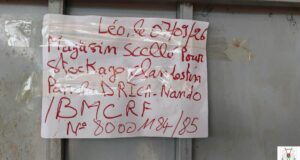 Léo, le 07/09/26
Magasin Scellé Pour
Stockage Clandestin
Par la DRICA-Nando
/BMCRF
N° 80001184/85